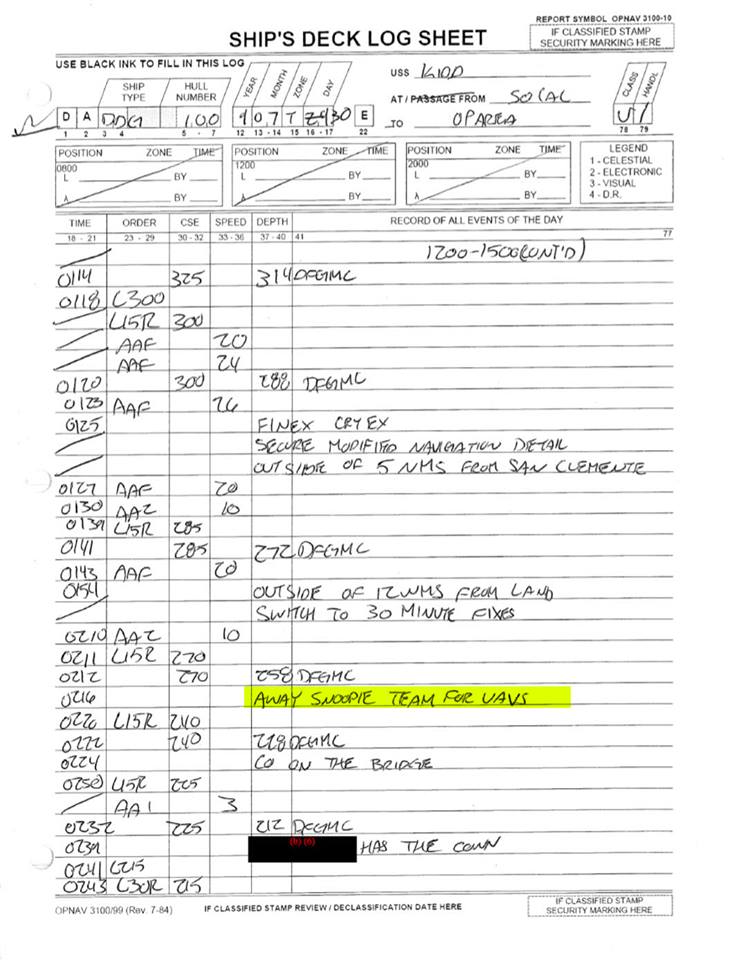 REPORT SYMBOL OPNAV 3100-10
IF CLASSIFIED STAMP
SECURITY MARKING HERE
SHIP'S DECK LOG SHEET
USE BLACK INK TO FILL IN THIS LOG
SHIP TYPE HULL NUMBER YEAR MONTH ZONE DAY
USS KIDD
AT / PASSAGE FROM SOCAL
TO OPAREA
CLASS HANDL
D A DDG 100 E U
1 2 3 4 5 - 7 12 13 - 14 15 16 - 17 22 78 79
POSITION ZONE TIME POSITION ZONE TIME POSITION ZONE TIME LEGEND
0800 1200 2000 1 - CELESTIAL
L BY L BY L BY 2 - ELECTRONIC
3 - VISUAL
λ BY λ BY λ BY 4 - D.R.
TIME ORDER CSE SPEED DEPTH RECORD OF ALL EVENTS OF THE DAY
18 - 21 23 - 29 30 - 32 33 - 36 37 - 40 41 77
(CONT'D)
0114 325 314 DFGMC
0118 C300
L15R 300
AAF 20
AAF 24
0120 300 288 DFGMC
0123 AAF 26
0125 FINEX CRYEX
SECURE MODIFIED NAVIGATION DETAIL
OUTSIDE OF 5 NMS FROM SAN CLEMENTE
0127 AAF 20
0130 AA2 10
0139 L15R 285
0141 285 272 DFGMC
0143 AAF 20
0154 OUTSIDE OF 12 NMS FROM LAND
SWITCH TO 30 MINUTE FIXES
0210 AA2 10
0211 L15R 270
0212 270 258 DFGMC
0216 AWAY SNOOPIE TEAM FOR UAVS
0220 L15R 240
0222 240 228 DFGMC
0224 CO ON THE BRIDGE
0230 L15R 225
AA1 3
0232 225 212 DFGMC
0239 (b) (6) HAS THE CONN
0241 C215
0243 L30R 215
OPNAV 3100/99 (Rev. 7-84) IF CLASSIFIED STAMP REVIEW / DECLASSIFICATION DATE HERE
IF CLASSIFIED STAMP
SECURITY MARKING HERE